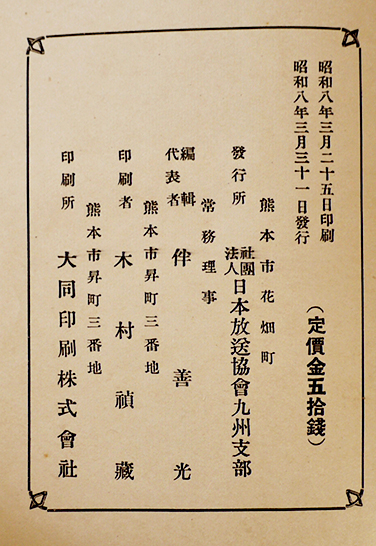 昭和八年三月二十五日印刷
昭和八年三月三十一日發行
(定價金五拾錢)
熊本市花畑町
發行所 社團法人日本放送協會九州支部
常務理事
編輯代表者 伴善光
熊本市昇町三番地
印刷者 木村禎藏
熊本市昇町三番地
印刷所 大同印刷株式會社